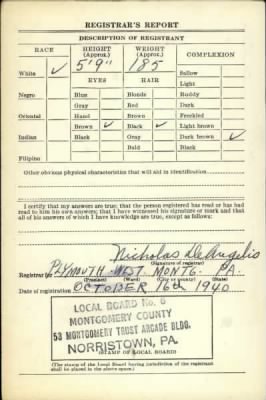 REGISTRAR'S REPORT
DESCRIPTION OF REGISTRANT
RACE HEIGHT (Approx.) WEIGHT (Approx.) COMPLEXION
5'9" 185
White ✓ Sallow
EYES HAIR Light
Negro Blue Blonde Ruddy
Gray Red Dark
Oriental Hazel Brown Freckled
Brown ✓ Black ✓ Light brown
Indian Black Gray Dark brown ✓
Bald Black
Filipino
Other obvious physical characteristics that will aid in identification
I certify that my answers are true; that the person registered has read or has had
read to him his own answers; that I have witnessed his signature or mark and that
all of his answers of which I have knowledge are true, except as follows:
Nicholas DeAngelis
(Signature of registrar)
Registrar for PLYMOUTH WEST MONTG. PA.
(Precinct) (Ward) (City or county) (State)
Date of registration OCTOBER 16th 1940
LOCAL BOARD No. 6
MONTGOMERY COUNTY
53 MONTGOMERY TRUST ARCADE BLDG.
NORRISTOWN, PA.
(STAMP OF LOCAL BOARD)
(The stamp of the Local Board having jurisdiction of the registrant
shall be placed in the above space.)